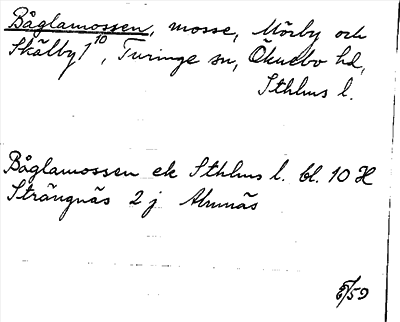 Båglamossen, mosse, Mörby och
Skälby 1¹⁰, Turinge sn, Öknebo hd,
Sthlms l.
Båglamossen ek Sthlms l. bl. 10 H
Strängnäs 2 j Almnäs
/59